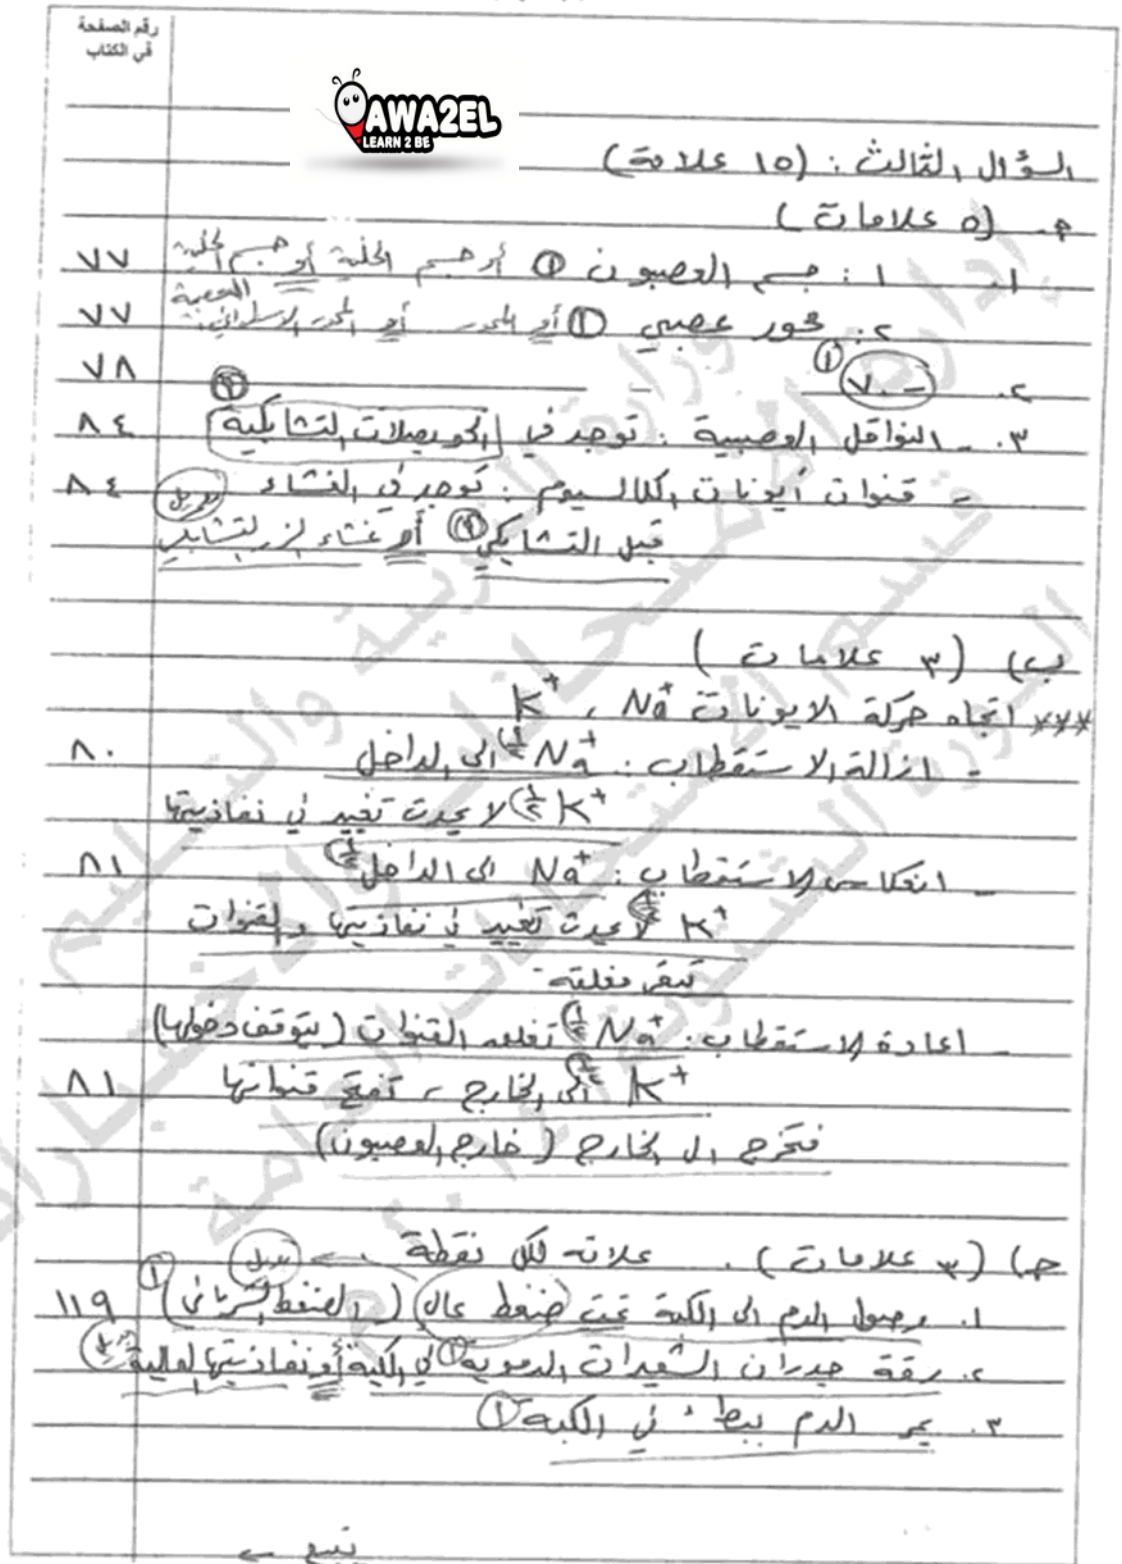 رقم الصفحة
في الكتاب
AWA2EL
LEARN 2 BE
السؤال الثالث : (١٥ علامة)
P. (٥ علامات)
١. ١ : جسم العصبون ① أو جسم الخلية أو جسم الخلية العصبية ٧٧
٢ : محور عصبي ① أو المحور أو المحور الاسطواني. ٧٧
٢. - ٧٠ ① ٧٨
٣. - النواقل العصبية : توجد في الحويصلات التشابكية ① ٨٤
- قنوات أيونات الكالسيوم : توجد في الغشاء ٨٤
قبل التشابكي ① أو غشاء الزر التشابكي بديل
ب) (٣ علامات)
*** اتجاه حركة الايونات Na+ ، K+
- ازالة الاستقطاب : Na+ (½) الى الداخل ٨٠
K+ (½) لا يحدث تغيير في نفاذيتها
- انعكاس الاستقطاب : Na+ الى الداخل (½) ٨١
K+ (½) لا يحدث تغيير في نفاذيتها والقنوات
تبقى مغلقة
- اعادة الاستقطاب : Na+ (½) تغلق القنوات (يتوقف دخولها)
K+ (½) الى الخارج ، تفتح قنواتها ٨١
فتخرج الى الخارج (خارج العصبون)
جـ) (٣ علامات) . علامة لكل نقطة ← بديل
١. وصول الدم الى الكبة تحت ضغط عالٍ (الضغط الشرياني) ① ١١٩
٢. رقة جدران الشعيرات الدموية ① في الكبة أو نفاذيتها العالية بديل
٣. يمر الدم ببطء في الكبة ①
يتبع ←